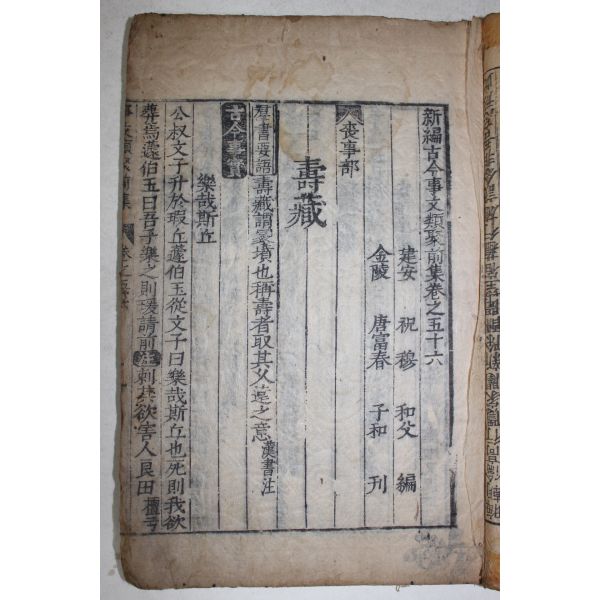 新編古今事文類聚前集卷之五十六
建安 祝穆 和父 編
金陵 唐富春 子和 刊
喪事部
壽藏
羣書要語 壽藏謂冢壙也稱壽者取其久遠之意 漢書注
古今事實
樂哉斯丘
公叔文子升於瑕丘蘧伯玉從文子曰樂哉斯丘也死則我欲
葬焉蘧伯玉曰吾子樂之則瑗請前 刺其欲害人良田 檀弓